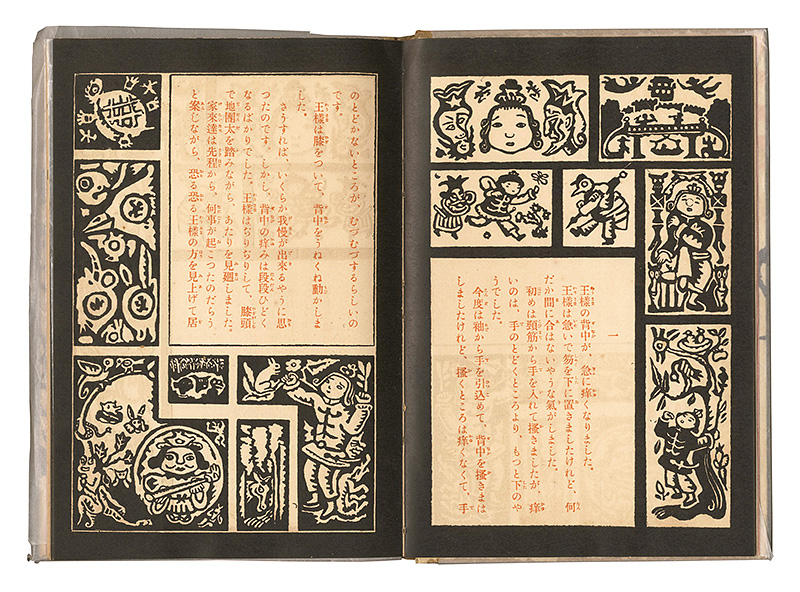 一
王様の背中が、急に痒くなりました。
王様は急いで笏を下に置きましたけれど、何
だか間に合はないやうな氣がしました。
初めは頸筋から手を入れて掻きましたが、痒
いのは、手のとどくところより、もつと下のや
うでした。
今度は袖から手を引込めて、背中を掻きまは
しましたけれど、掻くところは痒くなくて、手
のとどかないところが、むづむづするらしいの
です。
王様は膝をついて、背中をうねくね動かしま
した。
さうすれば、いくらか我慢が出來るやうに思
つたのです。しかし、背中の痒みは段段ひどく
なるばかりでした。王様はぢりぢりして、膝頭
で地團太を踏みながら、あたりを見廻しました。
家來達は先程から、何事が起こつたのだらう
と案じながら、恐る恐る王様の方を見上げて居